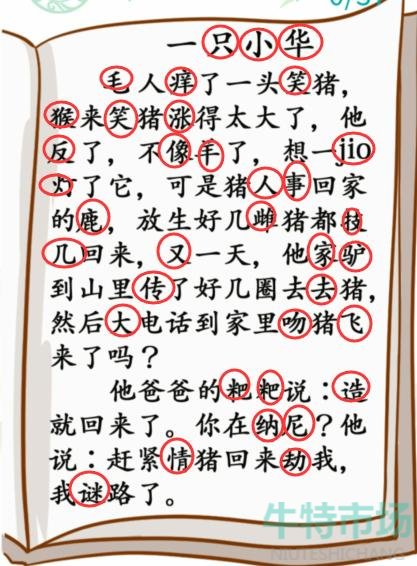 一只小华
毛人痒了一头笑猪，
猴来笑猪涨得太大了，他
反了，不像羊了，想一jio
灯了它，可是猪人事回家
的鹿，放生好几雌猪都技
几回来，又一天，他家驴
到山里传了好几圈去去猪，
然后大电话到家里吻猪飞
来了吗？
他爸爸的粑粑说：造
就回来了。你在纳尼？他
说：赶紧情猪回来劫我，
我谜路了。
牛特市场
NIUTESHICHANG